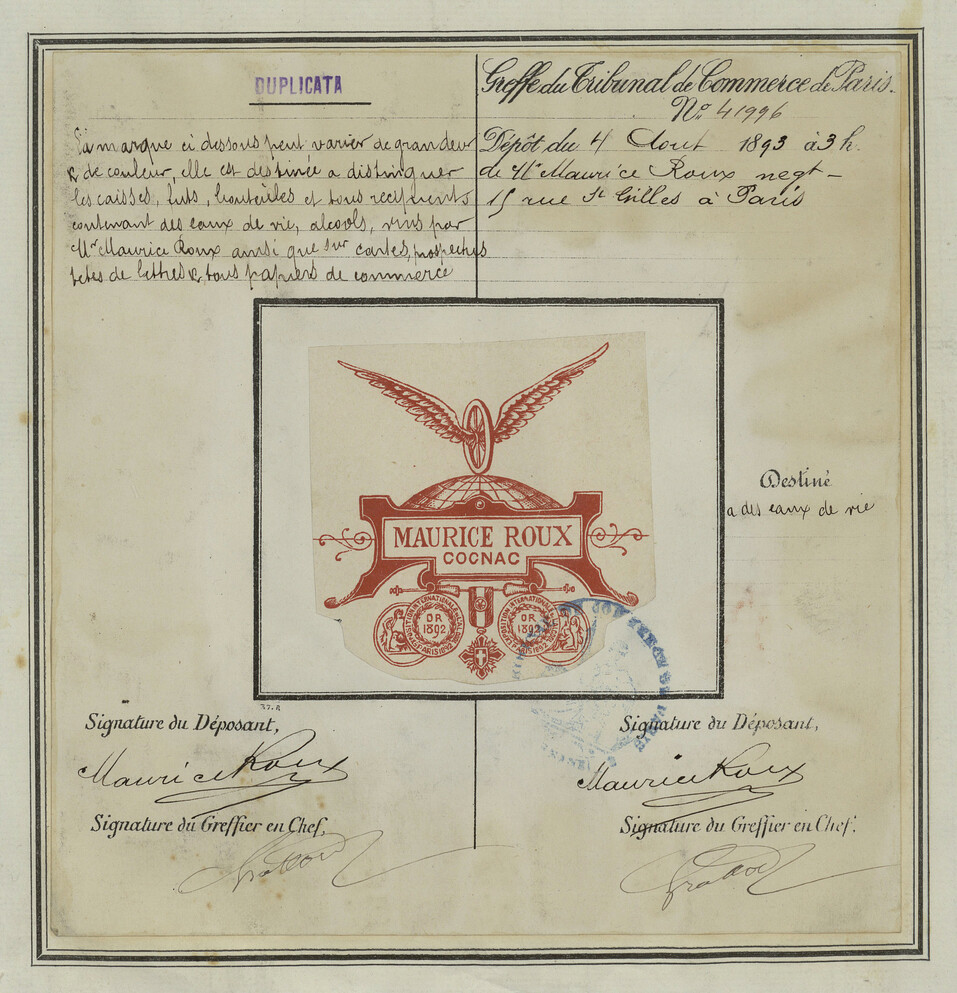 DUPLICATA
La marque ci dessous peut varier de grandeur
& de couleur, elle est destinée a distinguer
les caisses, futs, bouteilles et tous récipients
contenant des eaux de vie, alcools, vins par
Mr Maurice Roux ainsi que sur cartes, prospectus
têtes de lettres & tous papiers de commerce
Greffe du Tribunal de Commerce de Paris.
No. 41996
Dépôt du 4 Aout 1893 à 3 h.
de Mr Maurice Roux negt
15 rue St Gilles à Paris
MAURICE ROUX
COGNAC
EXPOSITION INTERNATIONALE
OR
1892
PARIS 1892
EXPOSITION INTERNATIONALE
OR
1892
PARIS 1892
Destiné
a des eaux de vie
37. R
Signature du Déposant,
Maurice Roux
Signature du Greffier en Chef,
Signature du Déposant,
Maurice Roux
Signature du Greffier en Chef.